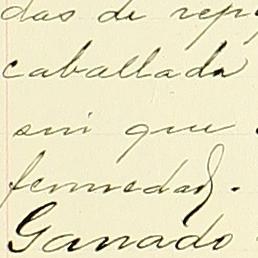 das de rep
caballada
sin que
fermedad.
Ganado